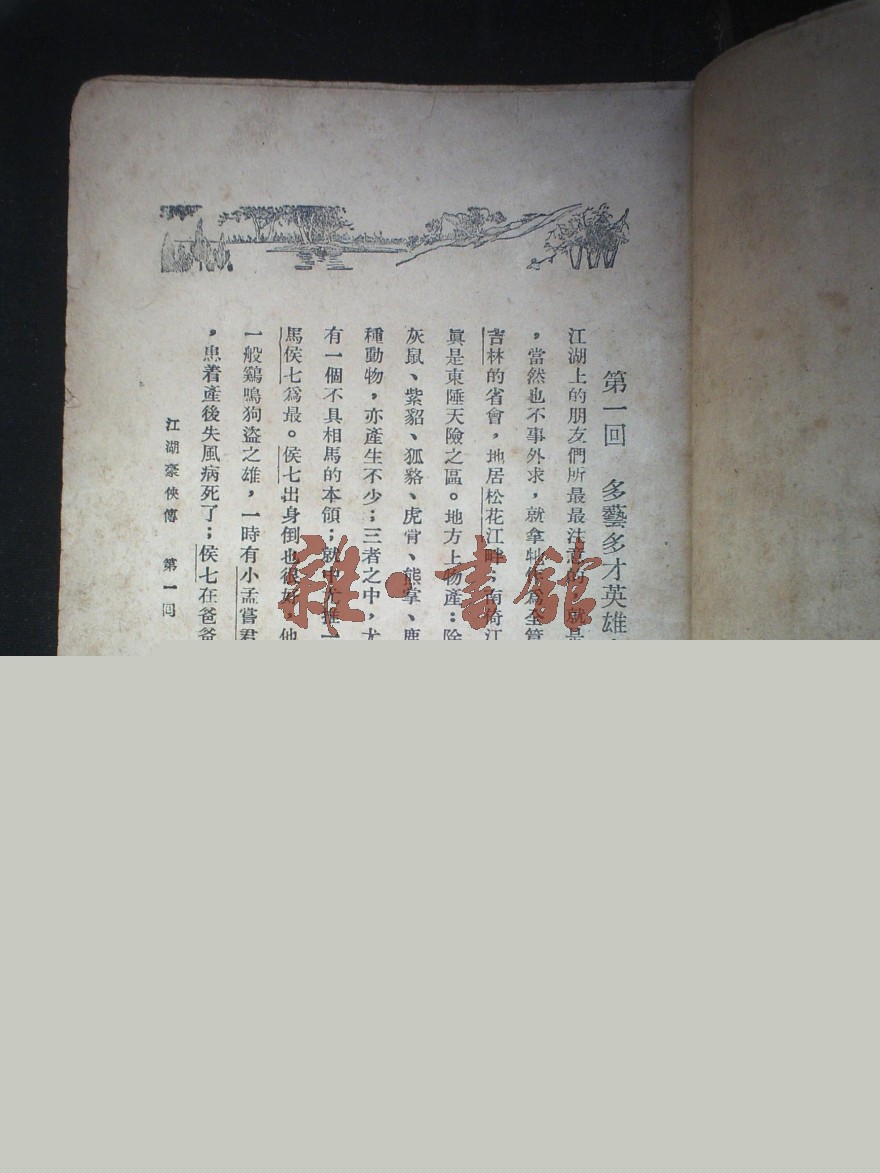 第一回 多藝多才英雄
江湖上的朋友們所最最注意的 就是
，當然也不事外求，就拿
吉林的省會，地居松花江畔；南倚江
眞是東陲天險之區。地方上物產：除
灰鼠、紫貂、狐貉、虎骨、熊掌、鹿
種動物，亦產生不少；三者之中，尤
有一個不具相馬的本領；就中尤推一
馬侯七爲最。侯七出身倒也很好，他
一般鷄鳴狗盜之雄，一時有小孟嘗君
，患着產後失風病死了；侯七在爸爸
江湖豪俠傳 第一囘
雜·書館